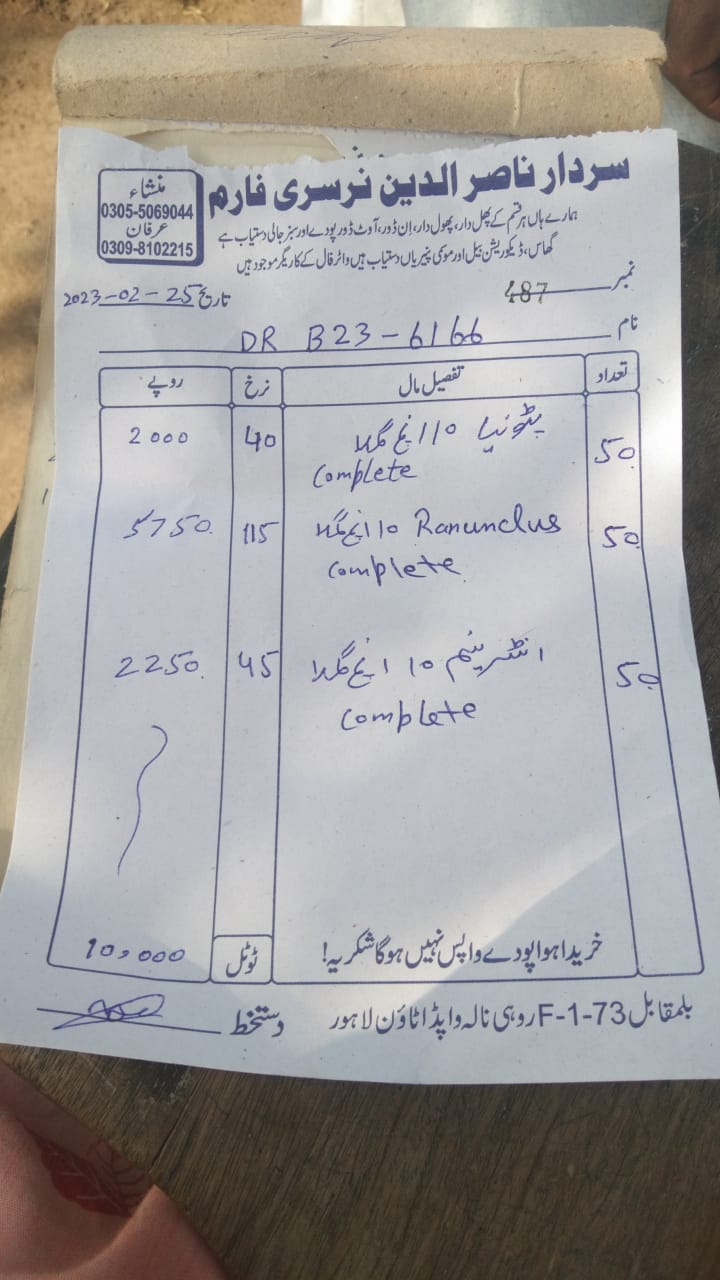 سردار ناصر الدین نرسری فارم
منشاء
0305-5069044
عرفان
0309-8102215
ہمارے ہاں ہر قسم کے پھل دار، پھول دار، اِن ڈور، آوٹ ڈور پودے اور سبز جالی دستیاب ہے
گھاس، ڈیکوریشن بیل اور موسمی پنیریاں دستیاب ہیں واٹر فال کے کاریگر موجود ہیں
نمبر 487
تاریخ 25-02-2023
نام DR B23-6166
تعداد تفصیل مال نرخ روپے
50 پٹونیا 10 انچ گملا 40 2000
Complete
50 Ranunclus 10 انچ گملا 115 5750
Complete
50 انٹرینم 10 انچ گملا 45 2250
Complete
خریدا ہوا پودے واپس نہیں ہوگا شکریہ! ٹوٹل 10,000
بلمقابل F-1-73 روہی نالہ واپڈا ٹاؤن لاہور
دستخط